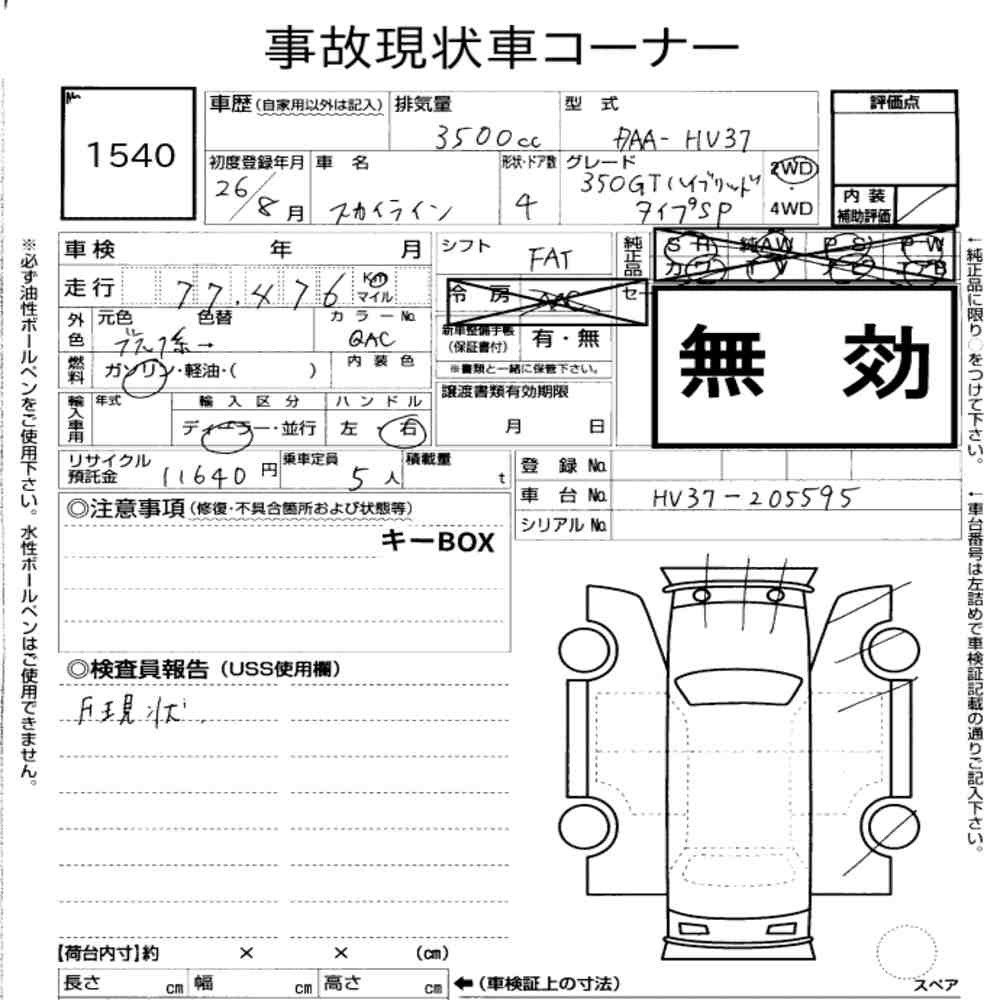 事故現状車コーナー
No.
1540
車歴 (自家用以外は記入)
排気量
3500cc
型式
DAA-HV37
評価点
初度登録年月
26/8月
車名
スカイライン
形状・ドア数
4
グレード
350GTハイブリッド
タイプSP
2WD
・
4WD
内装
補助評価
車検 年 月
シフト
FAT
純正品
SR 純AW PS PW
カワ TV ナビ エアB
走行 77,476 Km
マイル
冷房 AAC
セー
外色
元色 色替
ブラック系→
カラーNo.
QAC
新車整備手帳
(保証書付)
有・無
無効
燃料
ガソリン・軽油・( )
内装色
※書類と一緒に保管下さい。
輸入車用
年式
輸入区分
ディーラー・並行
ハンドル
左・右
譲渡書類有効期限
月 日
リサイクル
預託金 11640円
乗車定員
5人
積載量
t
登録No.
車台No. HV37-205595
シリアルNo.
◎注意事項 (修復・不具合箇所および状態等)
キーBOX
◎検査員報告 (USS使用欄)
現状.
【荷台内寸】約 × × (cm)
長さ cm 幅 cm 高さ cm ←(車検証上の寸法)
スペア
※必ず油性ボールペンをご使用下さい。水性ボールペンはご使用できません。
←純正品に限り○をつけて下さい。
←車台番号は左詰めで車検証記載の通りご記入下さい。